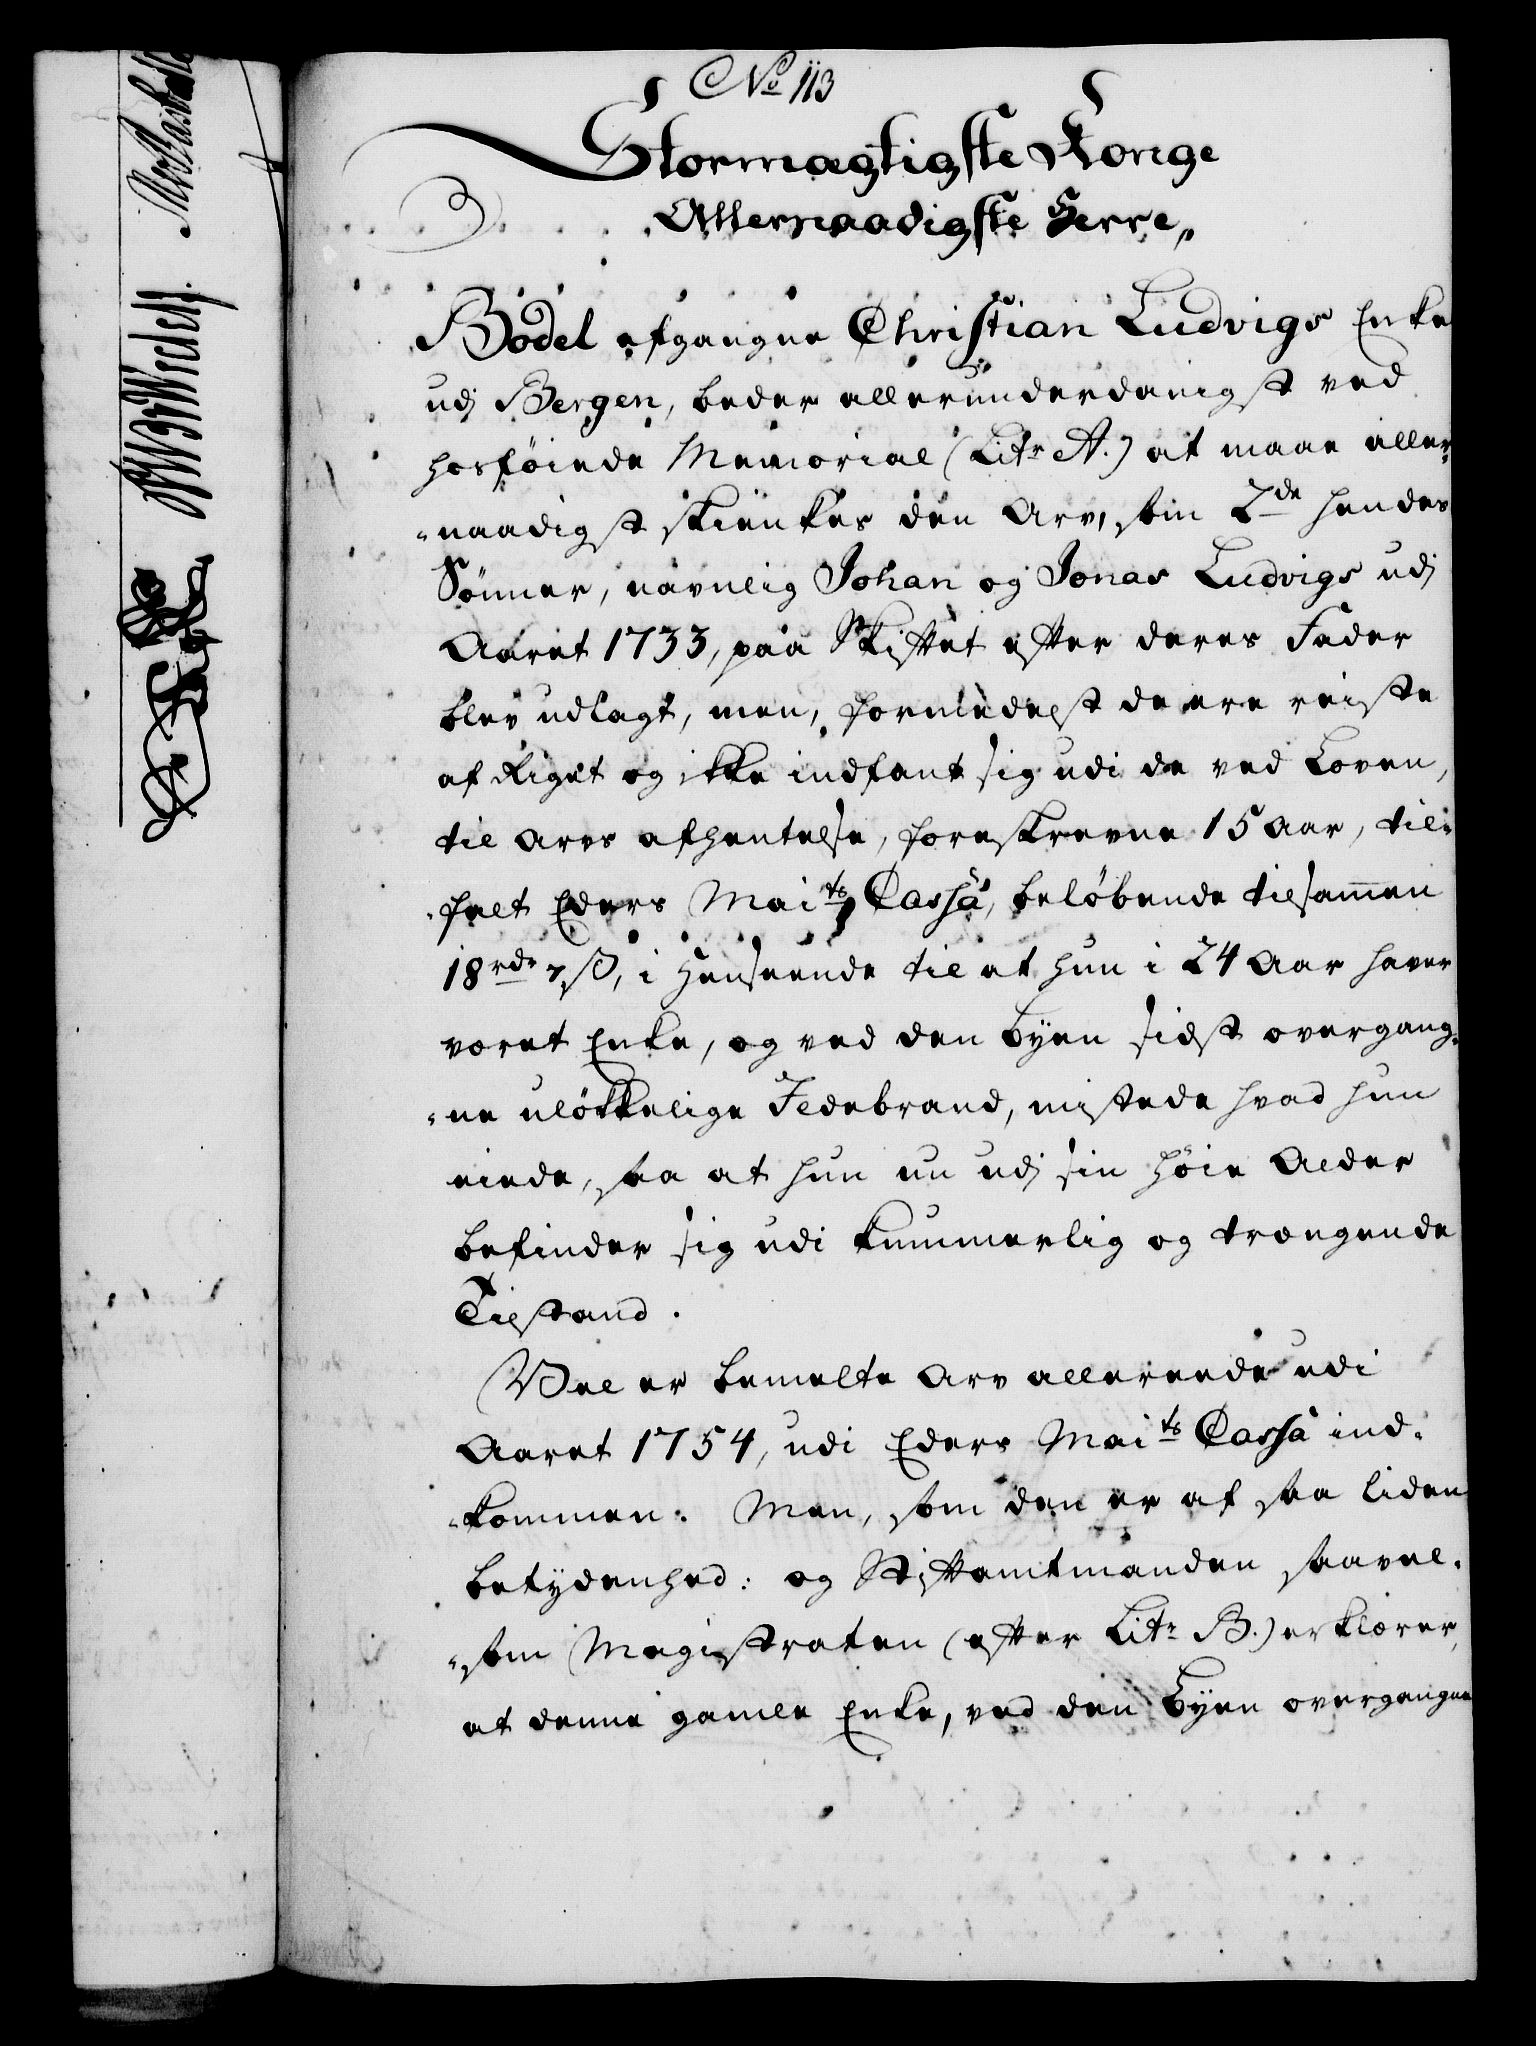 No 113
Stormægtigste Konge
Allernaadigste Herre,,
Bodel afgangne Christian Ludvigs Enke
udj Bergen, beder allerunderdanigst ved
hosføiede Memorial (Litr A.) at maae aller-
-naadigst skienkes den Arv, som 2de hendes
Sönner, navnlig Johan og Jonas Ludvigs udj
Aaret 1733, paa Skiftet efter deres Fader
blev udlagt, men, formedelst de ere reiste
af Riget og ikke indfant sig udi de ved Loven,
til Arvs afhentelse, foreskrevne 15 Aar, til-
-falt Eders Maits Cassa, beløbende tilsammen
18 rdr 7 ß, i Henseende til at hun i 24 Aar haver
været Enke, og ved den Byen sidst overgang-
-ne ulökkelige Ildebrand, mistede hvad hun
eiede, saa at hun nu udj sin høie Alder
befinder sig udi kummerlig og trængende
Tilstand.
Vel er bemelte Arv allereede udi
Aaret 1754, udi Eders Maits Cassa ind-
-kommen: Men, som den er af saa liden
betydenhed: og Stiftamtmanden saavel-
-som Magistraten (efter Litr B.) erklærer,
at denne gamle Enke, ved den Byen overgangne